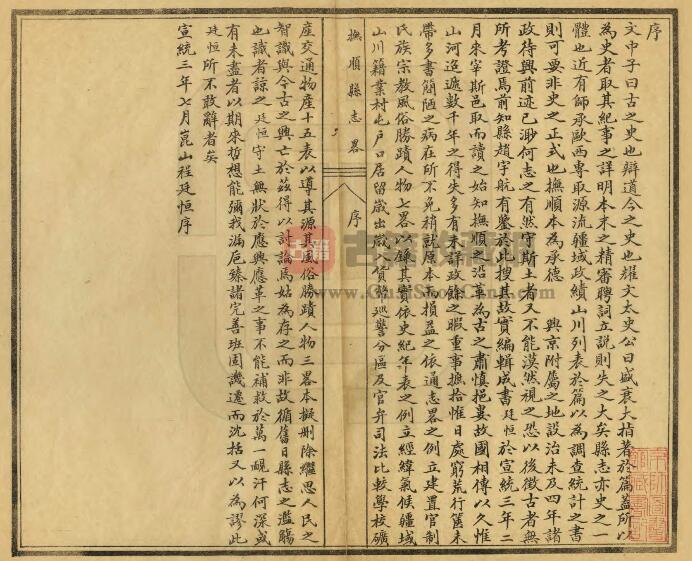 序
文中子曰古之史也辯道今之史也耀文太史公曰盛衰大指著於篇蓋所以
為史者取其紀事之詳明本末之精審騁詞立說則失之大矣縣志亦史之一
體也近有師承歐西專取源流疆域政績山川列表於篇以為調查統計之書
則可要非史之正式也撫順本為承德 興京附屬之地設治未及四年諸
政待興前迹已渺何志之有然守斯土者又不能漠然視之恐以後徵古者無
所考證焉前知縣趙宇航有鑒於此搜其故實編輯成書廷恒於宣統三年二
月來宰斯邑取而讀之始知撫順之沿革為古之肅慎挹婁故國相傳以久惟
山河迢遞數千年之得失多有未詳政餘之暇重事摭拾惟日處窮荒行篋未
帶多書簡陋之病在所不免稍就原本為損益之依通志畧之例立建置官制
氏族宗教風俗勝蹟人物七畧以錄其實依史紀年表之例立經緯氣候疆域
山川籍業村屯戶口居留歲出歲入貨幣巡警分區及官弁司法比較學校礦
撫順縣志畧
序
產交通物產十五表以導其源其風俗勝蹟人物三畧本擬刪除繼思人民之
智識與今古之興亡於茲得以討論焉姑為存之而非故循舊日縣志之濫觴
也識者諒之廷恒守土無狀於應興應革之事不能補救於萬一靦汗何深或
有未盡者以期來哲想能彌我漏卮臻諸完善班固譏遷而沈括又以為謬此
廷恒所不敢辭者矣
宣統三年七月崑山程廷恒序
古籍收藏網
www.GuJiShouCang.com